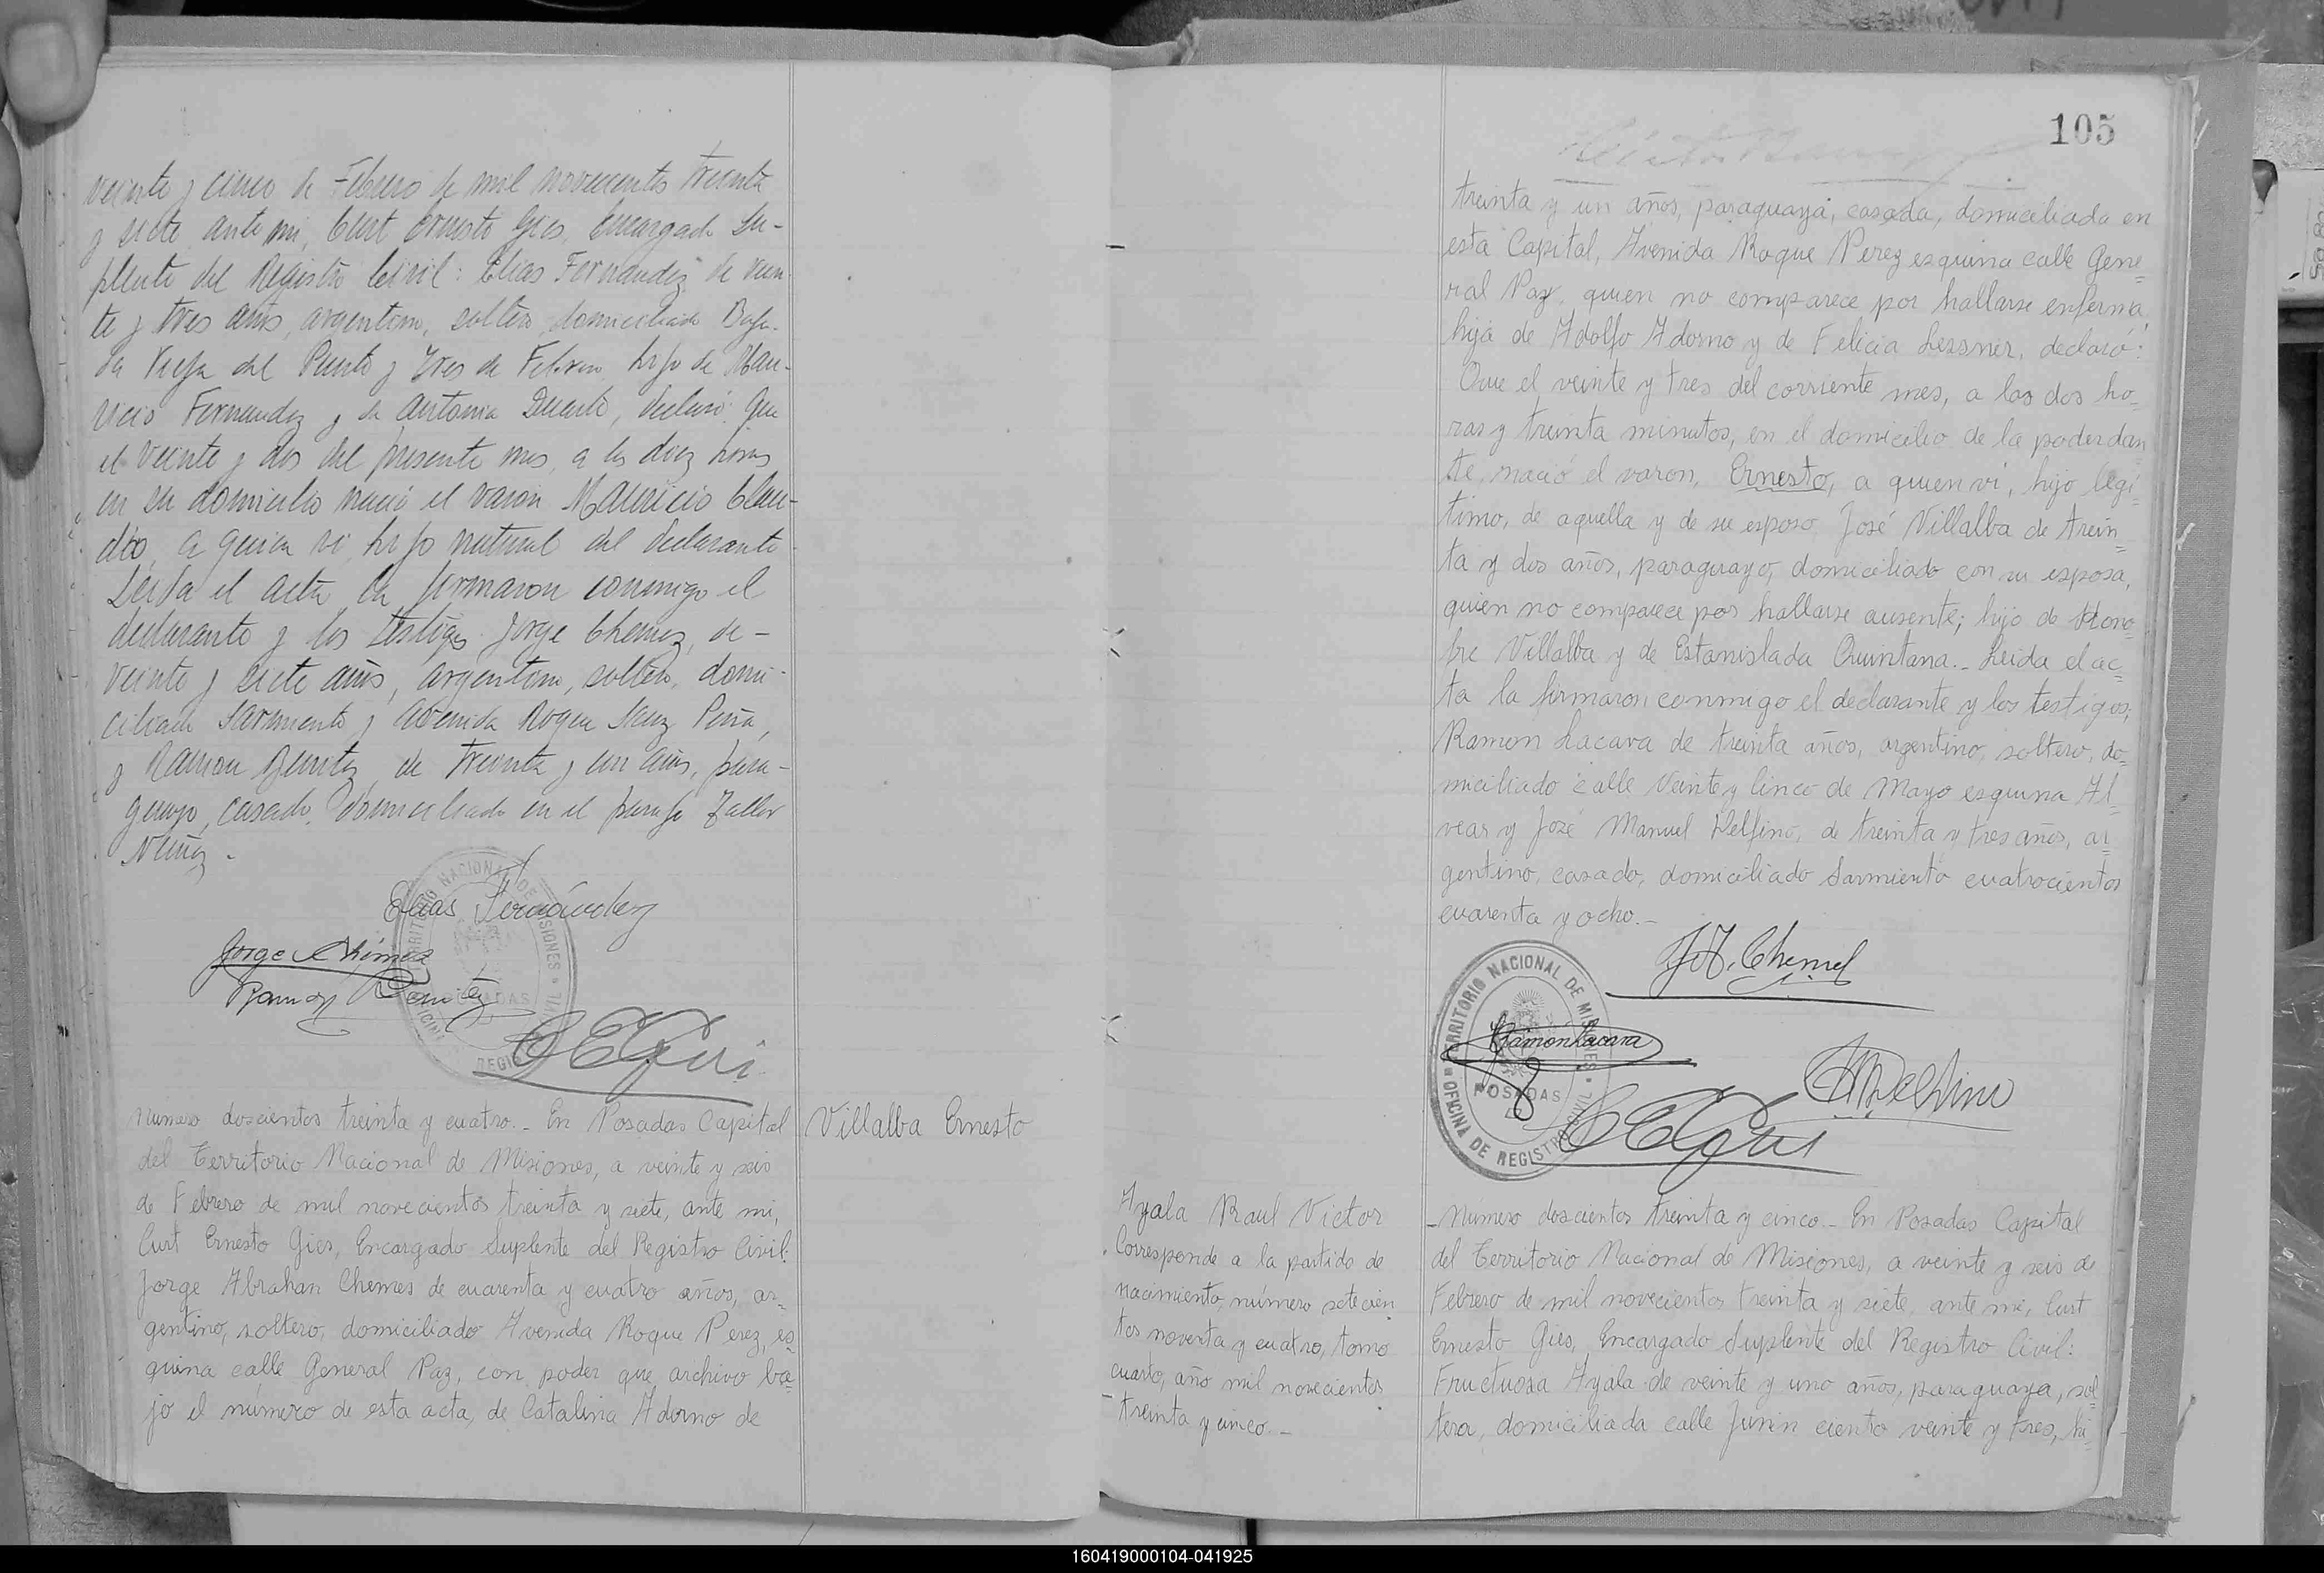 veinte y cinco de Febrero de mil novecientos treinta
y siete ante mi, Curt Ernesto Gies, Encargado Su-
plente del Registro Civil: Elias Fernandez de vein-
te y tres años, argentino, soltero, domiciliado Baja-
da Vieja del Puerto y Tres de Febrero, hijo de Mau-
ricio Fernandez y de Antonia Duarte, declaró: Que
el veinte y dos del presente mes, a las diez horas
en su domicilio nació el varon Mauricio Clau-
dio, a quien vi, hijo natural del declarante
Leida el acta la firmaron conmigo el
declarante y los testigos Jorge Chemes, de-
veinte y siete años, argentino, soltero, domi-
ciliado Sarmiento y Avenida Roque Saenz Peña,
y Ramon Benitez de treinta y un años, para-
guayo, casado, domiciliado en el paraje Zaller
Nuñez.
Elias Fernández
Jorge Chemes
Ramon Benitez
C E Gies
TERRITORIO NACIONAL DE MISIONES
POSADAS
Número doscientos treinta y cuatro.- En Posadas Capital
del Territorio Nacional de Misiones, a veinte y seis
de Febrero de mil novecientos treinta y siete, ante mi,
Curt Ernesto Gies, Encargado Suplente del Registro Civil:
Jorge Abrahan Chemes de cuarenta y cuatro años, ar=
gentino, soltero, domiciliado Avenida Roque Perez, es=
quina calle General Paz, con poder que archivo ba=
jo el número de esta acta, de Catalina Adorno de
Villalba Ernesto
105
treinta y un años, paraguaya, casada, domiciliada en
esta Capital, Avenida Roque Perez esquina calle Gene=
ral Paz, quien no comparece por hallarse enferma,
hija de Adolfo Adorno y de Felicia Lessner, declaró:
Que el veinte y tres del corriente mes, a las dos ho=
ras y treinta minutos, en el domicilio de la poderdan=
te, nació el varon, Ernesto, a quien vi, hijo legi=
timo, de aquella y de su esposo José Villalba de trein=
ta y dos años, paraguayo, domiciliado con su esposa,
quien no comparece por hallarse ausente; hijo de Hono=
fre Villalba y de Estanislada Quintana.- Leida el ac=
ta la firmaron conmigo el declarante y los testigos,
Ramon Lacava de treinta años, argentino, soltero, do=
miciliado calle Veinte y Cinco de Mayo esquina Al=
vear y José Manuel Delfino, de treinta y tres años, ar=
gentino, casado, domiciliado Sarmiento cuatrocientos
cuarenta y ocho.-
J. A. Chemes
Ramon Lacava
JMDelfino
C E Gies
TERRITORIO NACIONAL DE MISIONES
OFICINA DE REGISTRO CIVIL
POSADAS
Ayala Raul Victor
Corresponde a la partida de
nacimiento, número setecien
tos noventa y cuatro, tomo
cuarto, año mil novecientos
treinta y cinco.-
-Número doscientos treinta y cinco.- En Posadas Capital
del Territorio Nacional de Misiones, a veinte y seis de
Febrero de mil novecientos treinta y siete, ante mi, Curt
Ernesto Gies, Encargado Suplente del Registro Civil:
Fructuosa Ayala de veinte y uno años, paraguaya, sol=
tera, domiciliada calle Junin ciento veinte y tres, hi=
160419000104-041925